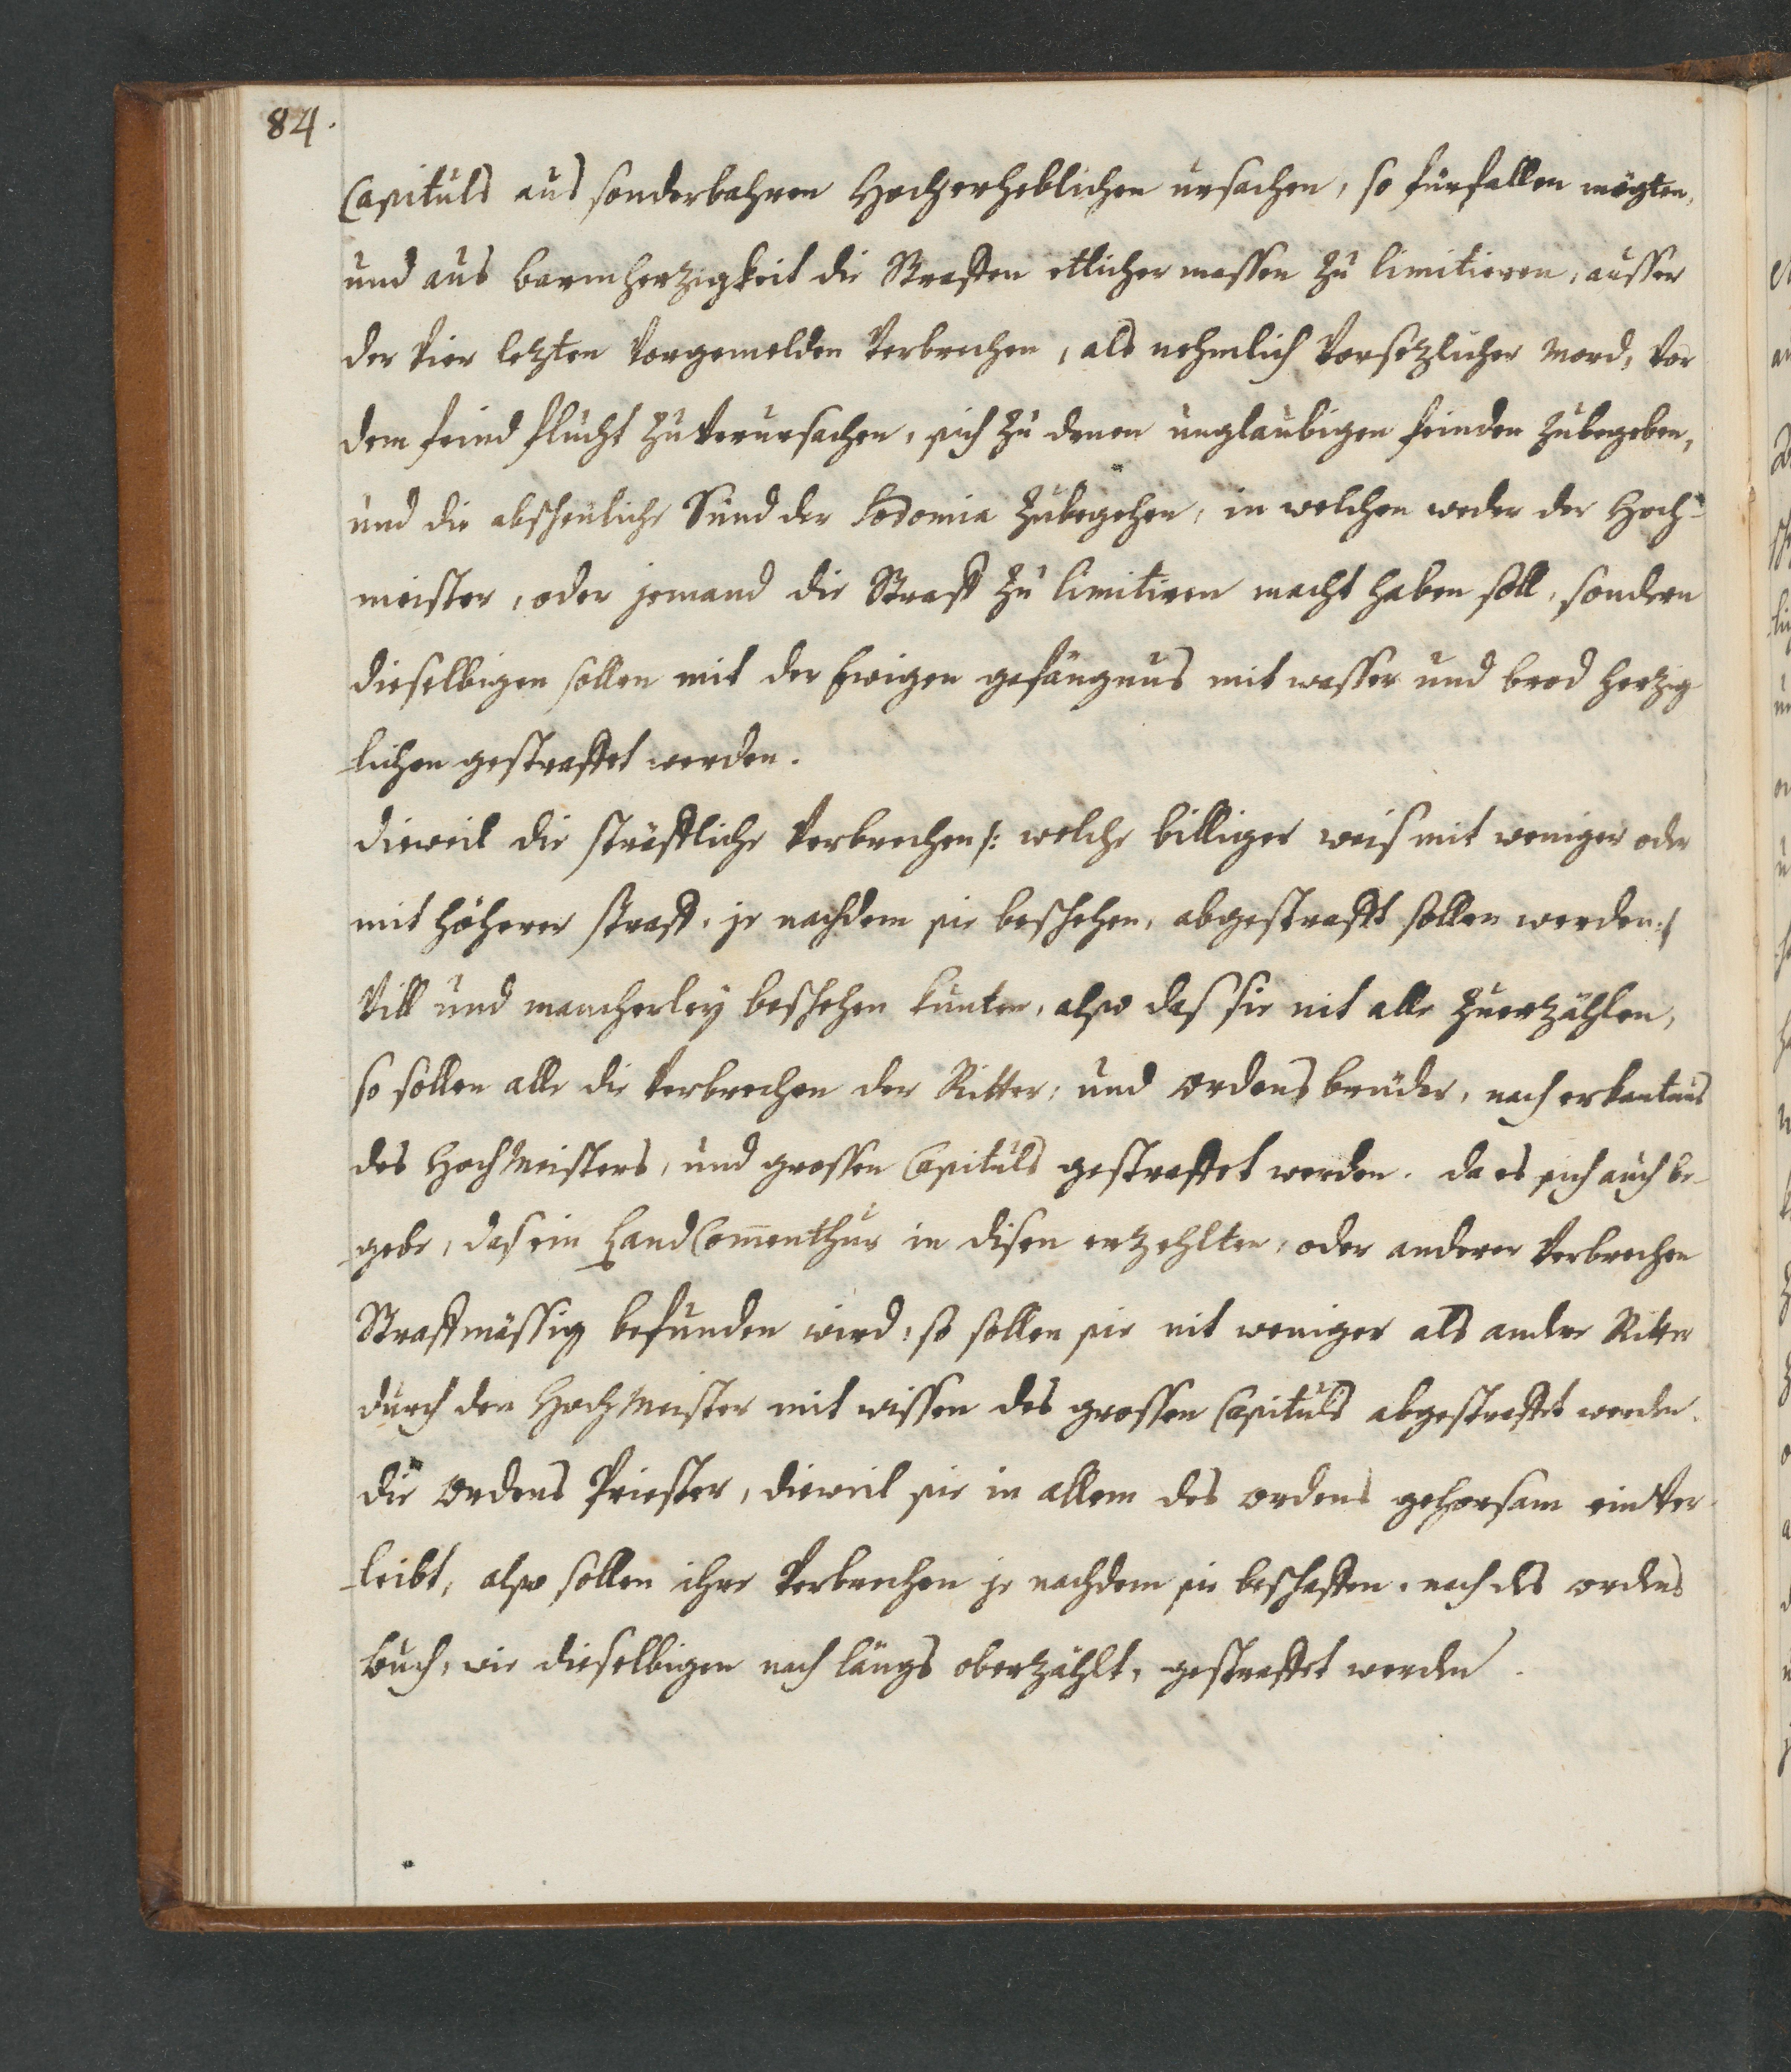 84.
Capituls aus sonderbahren Hocherheblichen ursachen, so fürfallen mögten,
und aus barmherzigkeit die Straffen etlicher massen zu limitieren, ausser
der vier letzten vorgemelden verbrechen, als nehmlich vorsezlicher Mord, vor
dem feind flucht zu verursachen, sich zu denen unglaubigen feinden zubegeben,
und die abscheuliche Sünd der Sodomia zubegehen, in welchen weder der Hoch-
meister, oder jemand die Straff zu limitiren macht haben soll, sondern
dieselbigen sollen mit der Ewigen gefängnus mit wasser und brod herzig
lichen gestraffet werden.
dieweil die sträffliche verbrechen /: welche billiger weis mit weniger oder
mit höherer straff, je nachdem sie beschehen, abgestrafft sollen werden :/
vill und mancherley beschehen kunten, also das sie nit alle zuerzählen,
so sollen alle die verbrechen der Ritter, und ordens brüder, nach erkantnus
des HochMeisters, und grossen Capituls gestraffet werden. da es sich auch be-
gebe, das ein LandCommenthur in disen erzehlten, oder anderen verbrechen
Straffmässig befunden wird, so sollen sie nit weniger als andere Ritter
durch den HochMeister mit wissen des grossen Capituls abgestraffet werden.
die Ordens Priester, dieweil sie in allem des ordens gehorsam einver-
leibt, also sollen ihre verbrechen je nachdem sie beschaffen, nach des ordens
buch, wie dieselbigen nach längs oberzählt, gestraffet werden.